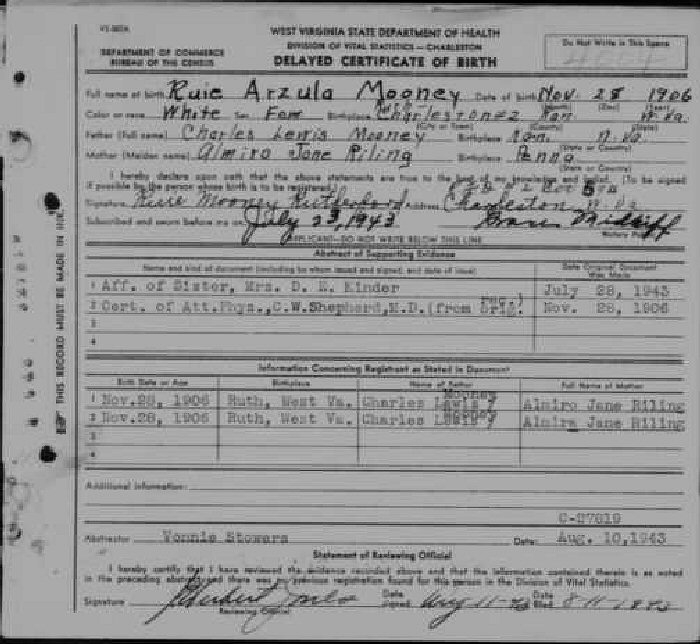 VS-202A
WEST VIRGINIA STATE DEPARTMENT OF HEALTH
DEPARTMENT OF COMMERCE
BUREAU OF THE CENSUS
DIVISION OF VITAL STATISTICS – CHARLESTON
DELAYED CERTIFICATE OF BIRTH
Do Not Write in This Space
Full name at birth Ruie Arzula Mooney Date of birth Nov. 28 1906
(Month) (Day) (Year)
Ruth
Color or race White Sex Fem Birthplace Charleston Kan. W.Va.
(City or Town) (County) (State)
Father (Full name) Charles Lewis Mooney Birthplace Kan. W.Va.
(State or Country)
Mother (Maiden name) Almira Jane Riling Birthplace Penna
(State or Country)
I hereby declare upon oath that the above statements are true to the best of my knowledge and belief. (To be signed
if possible by the person whose birth is to be registered.)
Signature Ruie Mooney Rutherford Address Charleston, W.Va
Subscribed and sworn before me on July 23, 1943
Notary Public
APPLICANT—DO NOT WRITE BELOW THIS LINE
Abstract of Supporting Evidence
Name and kind of document (including by whom issued and signed, and date of issue) Date Original Document Was Made
1 Aff. of Sister, Mrs. D. E. Kinder July 28, 1943
2 Cert. of Att.Phys., C.W.Shepherd, M.D. (from orig. rec.) Nov. 28, 1906
3
4
Information Concerning Registrant as Stated in Document
Birth Date or Age Birthplace Name of Father Full Name of Mother
1 Nov.28, 1906 Ruth, West Va. Charles Lewis Mooney Almira Jane Riling
2 Nov.28, 1906 Ruth, West Va. Charles Lewis Mooney Almira Jane Riling
3
4
Additional information:
Abstractor Vonnie Stowers Date: Aug. 10, 1943
Statement of Reviewing Official
I hereby certify that I have reviewed the evidence recorded above and that the information contained therein is as noted
in the preceding abstract and there was no previous registration found for this person in the Division of Vital Statistics.
Signature Date Signed Aug 11-43 Date Filed 8-11-1943
Reviewing Official
THIS RECORD MUST BE MADE IN INK